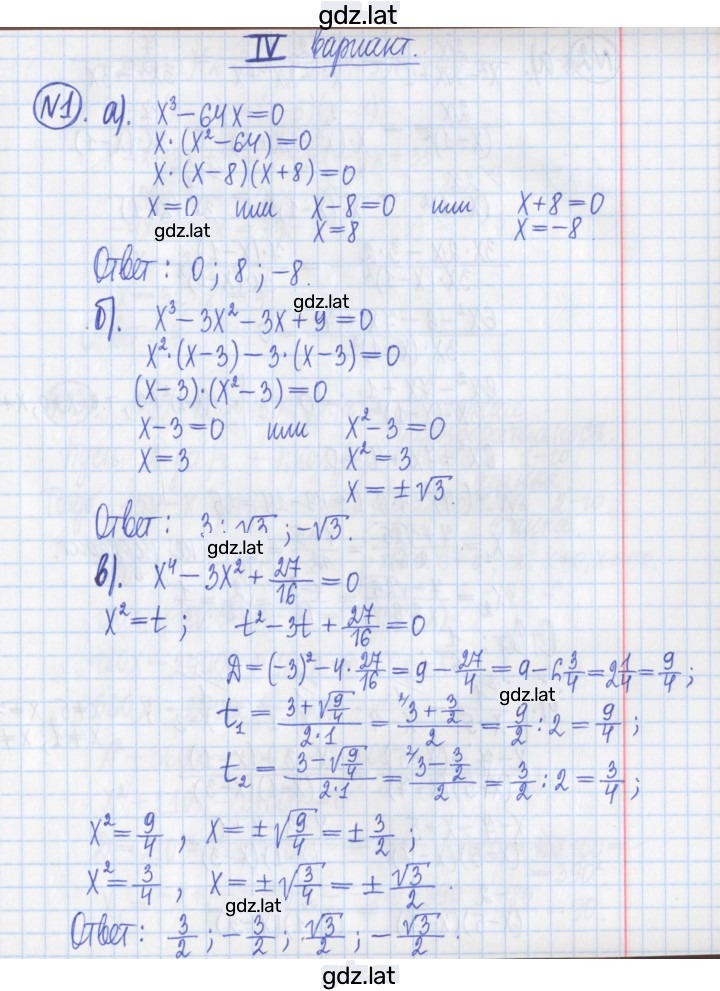 gdz.lat
IV вариант.
N1. а). x³ − 64x = 0
x·(x² − 64) = 0
x·(x − 8)(x + 8) = 0
x = 0 или x − 8 = 0 или x + 8 = 0
gdz.lat x = 8 x = −8.
Ответ: 0; 8; −8.
gdz.lat
б). x³ − 3x² − 3x + 9 = 0
x²·(x − 3) − 3·(x − 3) = 0
(x − 3)·(x² − 3) = 0
x − 3 = 0 или x² − 3 = 0
x = 3 x² = 3
x = ±√3.
Ответ: 3; √3; −√3.
gdz.lat
в). x⁴ − 3x² + 27/16 = 0
x² = t; t² − 3t + 27/16 = 0
Д = (−3)² − 4·27/16 = 9 − 27/4 = 9 − 6 3/4 = 2 1/4 = 9/4;
gdz.lat
t₁ = (3 + √(9/4))/(2·1) = (²/3 + 3/2)/2 = 9/2 : 2 = 9/4;
t₂ = (3 − √(9/4))/(2·1) = (²/3 − 3/2)/2 = 3/2 : 2 = 3/4;
x² = 9/4, x = ±√(9/4) = ±3/2;
x² = 3/4, x = ±√(3/4) = ±√3/2.
gdz.lat
Ответ: 3/2; −3/2; √3/2; −√3/2.
gdz.lat